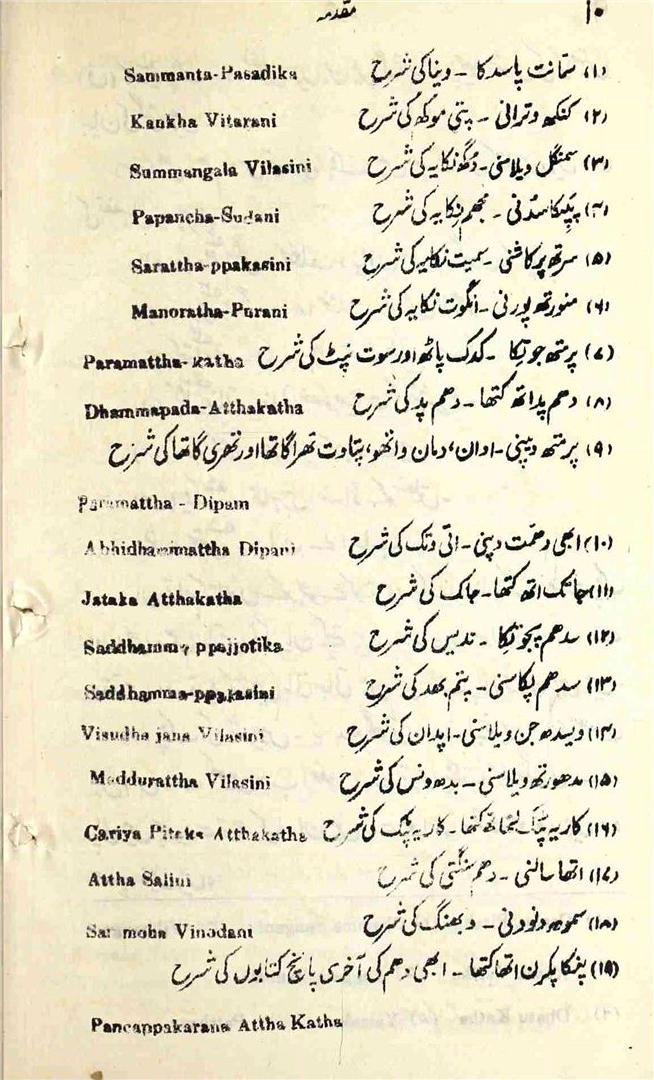 ۱۰ مقدمہ
(۱) سمّانت پاسدکا ۔ وینا کی شرح Sammanta-Pasadika
(۲) کنکھ وترانی ۔ پتی موکھ کی شرح Kankha Vitarani
(۳) سمنگل ویلاسنی ۔ دُگھ نکایہ کی شرح Summangala Vilasini
(۴) پپنکا سدنی ۔ مجھم نکایہ کی شرح Papancha-Sudani
(۵) سرتھ پرکاشنی ۔ سمیت نکایہ کی شرح Sarattha-ppakasini
(۶) منورتھ پورنی ۔ انگوت نکایہ کی شرح Manoratha-Purani
(۷) پرمتھ جوتِکا ۔ کدک پاٹھ اور سوت نپٹ کی شرح Paramattha-katha
(۸) دھم پد اتھ کتھا ۔ دھم پد کی شرح Dhammapada-Atthakatha
(۹) پرمتھ دیپنی ۔ اوان، دمان وانتھو، پتاوت تھراگاتھا اور تھری گاتھا کی شرح
Paramattha - Dipam
(۱۰) ابھی دھمّت دپنی ۔ اتی وتک کی شرح Abhidhammattha Dipani
(۱۱) جاتک اتھ کتھا ۔ جاتک کی شرح Jataka Atthakatha
(۱۲) سدھم پجوتِکا ۔ ندیس کی شرح Saddhamma ppajjotika
(۱۳) سدھم پکاسنی ۔ پتم بھد کی شرح Saddhamma-ppakasini
(۱۴) ویسدھ جن ویلاسنی ۔ اپدان کی شرح Visudha jana Vilasini
(۱۵) مدھورتھ ویلاسنی ۔ بدھ ونس کی شرح Maddurattha Vilasini
(۱۶) کاریہ پتک اتھ کتھا ۔ کاریہ پتک کی شرح Cariya Piteka Atthakatha
(۱۷) اتھا سالنی ۔ دھم سنگتی کی شرح Attha Salini
(۱۸) سموھ ونودنی ۔ وبھنگ کی شرح Sammoha Vinodani
(۱۹) پنکا پکرن اتھا کتھا ۔ ابھی دھم کی آخری پانچ کتابوں کی شرح
Pancappakarana Attha Katha